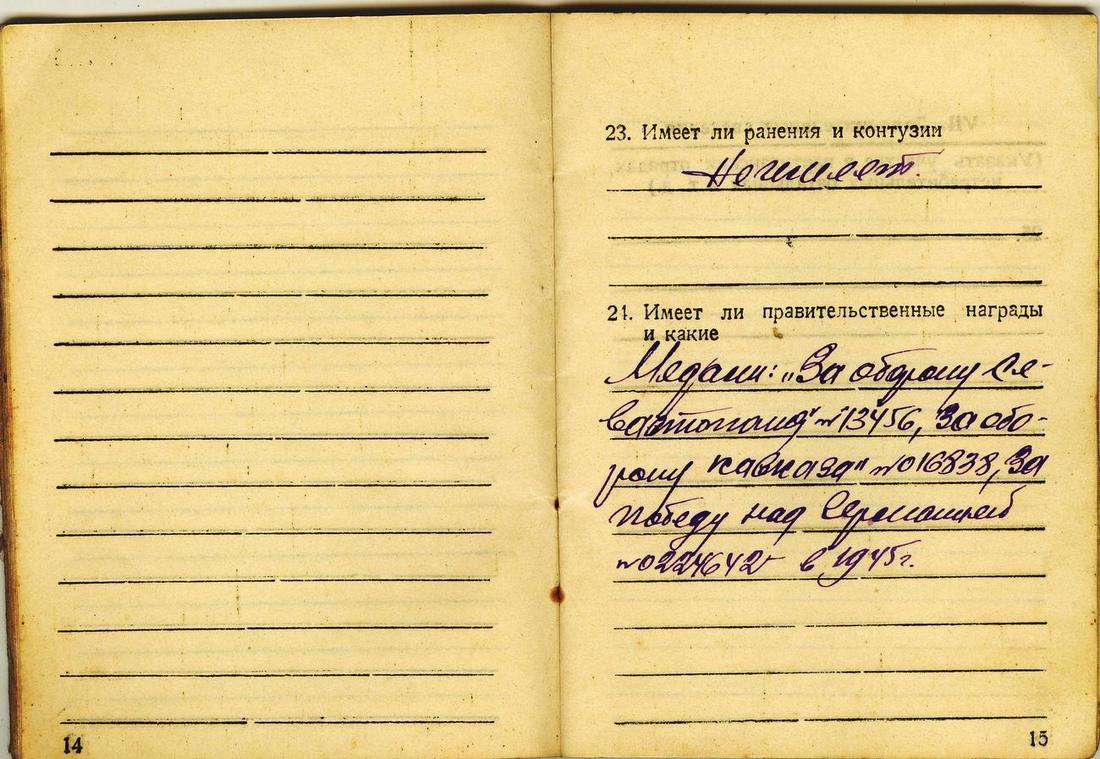 23. Имеет ли ранения и контузии
Не имеет.
24. Имеет ли правительственные награды
и какие
Медали: „За оборону Се-
вастополя" №13456, За обо-
рону Кавказа" №016838, За
победу над Германией
№0224642 в 1945г.
14
15